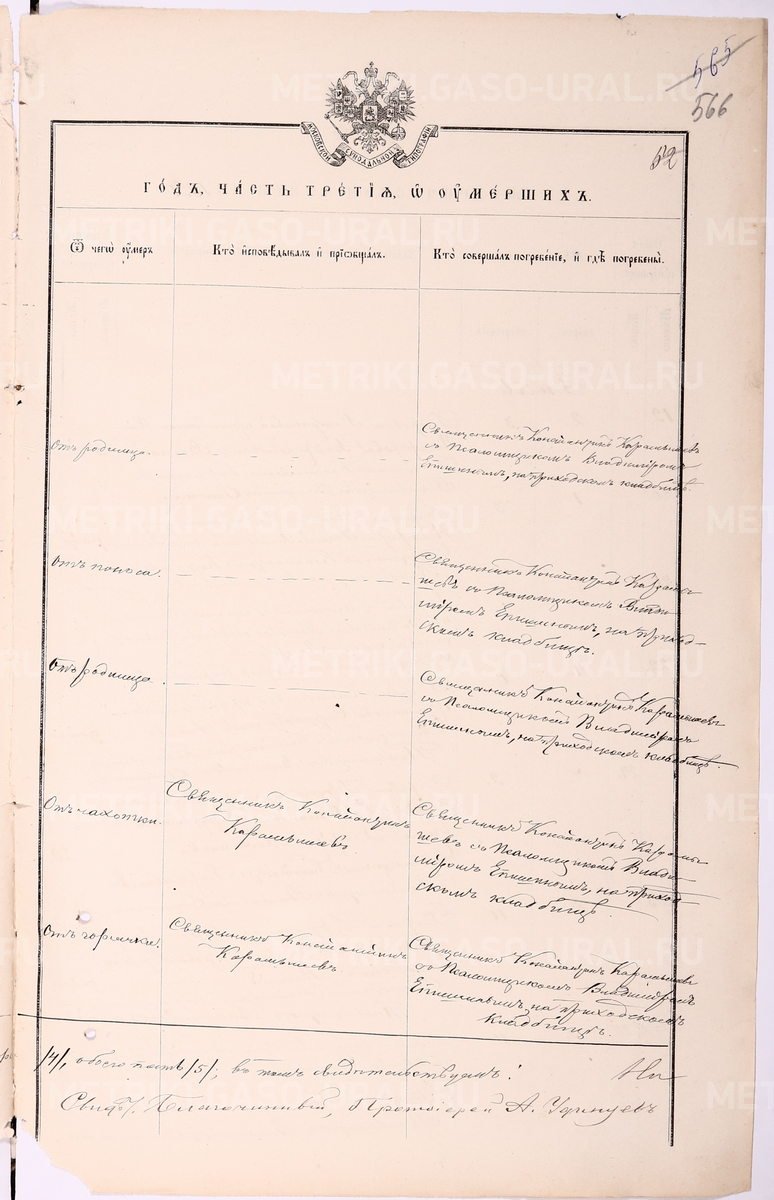 565
566
МОСКОВСКОЙ СѴНОДАЛЬНОЙ ТИПОГРАФІИ
52
ГОДЪ, ЧАСТЬ ТРЕТІЯ, Ѿ ОУМЕРШИХЪ.
Ѿ чегѡ оумеръ
Кто исповѣдывалъ и прїѡбщалъ.
Кто совершалъ погребенїе, и гдѣ погребены.
Отъ родимца.
Священникъ Константинъ Карамышевъ
съ Псаломщикомъ Владиміромъ
Епишинымъ, на приходскомъ кладбищѣ.
Отъ поноса.
Священникъ Константинъ Карамы-
шевъ съ Псаломщикомъ Влади-
міромъ Епишинымъ, на приход-
скомъ кладбищѣ.
Отъ родимца.
Священникъ Константинъ Карамышевъ
съ Псаломщикомъ Владиміромъ
Епишинымъ, на приходскомъ кладбищѣ.
Отъ чахотки.
Священникъ Константинъ
Карамышевъ
Священникъ Константинъ Карамы-
шевъ съ Псаломщикомъ Влади-
міромъ Епишинымъ, на приход-
скомъ кладбищѣ.
Отъ горячки.
Священникъ Константинъ
Карамышевъ
Священникъ Константинъ Карамышевъ
съ Псаломщикомъ Владиміромъ
Епишинымъ, на приходскомъ
кладбищѣ.
/4/, обоего пола /5/; въ томъ свидѣтельствуемъ:
Благочинный, Протоіерей А. Удинцевъ
METRIKI.GASO-URAL.RU